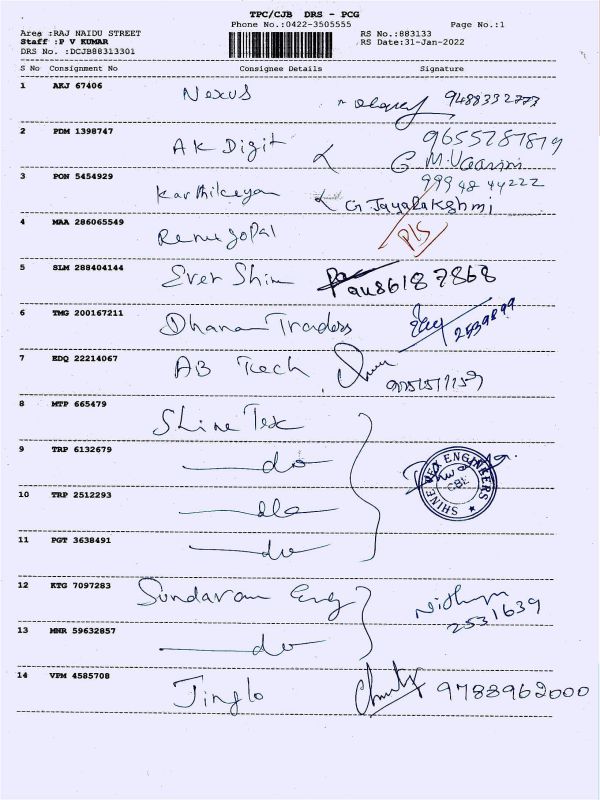 TPC/CJB DRS - PCG
Phone No.:0422-3505555 Page No.:1
Area :RAJ NAIDU STREET RS No.:883133
Staff :P V KUMAR RS Date:31-Jan-2022
DRS No. :DCJB88313301
S No Consignment No Consignee Details Signature
1 AKJ 67406 Nexus 9488332773
2 PDM 1398747 AK Digit 9655787879
G M.Vaanni
3 PON 5454929 Karthikeyan 99948 44222
G. Jayalakshmi
4 MAA 286065549 Renugopal P/S
5 SLM 288404144 Ever Shine 8618 7868
6 TMG 200167211 Dhana Traders 2539899
7 EDQ 22214067 AB Tech
8 MTP 665479 Shine Tex
9 TRP 6132679 do
SHINE TEX ENGINEERS CBE
10 TRP 2512293 do
11 PGT 3638491 do
12 KTG 7097283 Sundaram Eng 2531639
13 MNR 59632857 do
14 VPM 4585708 Jinglo 9788962000